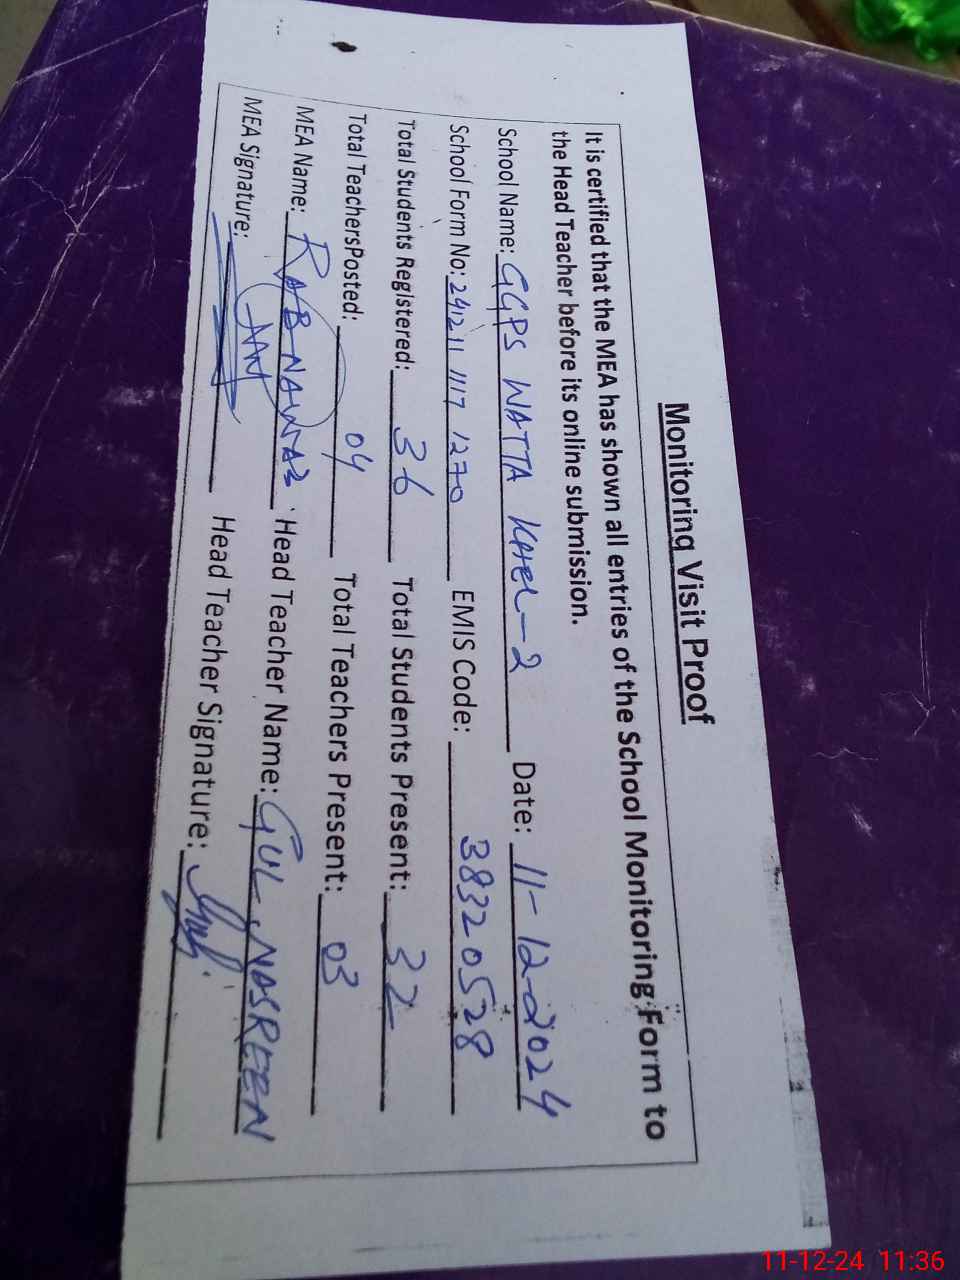 Monitoring Visit Proof
It is certified that the MEA has shown all entries of the School Monitoring Form to
the Head Teacher before its online submission.
School Name: GGPS WATTA KHEL-2 Date: 11-12-2024
School Form No: 241211 1117 1270 EMIS Code: 38320528
Total Students Registered: 36 Total Students Present: 32
Total TeachersPosted: 04 Total Teachers Present: 03
MEA Name: RAB NAWAZ Head Teacher Name: GUL NASREEN
MEA Signature: Head Teacher Signature:
11-12-24 11:36